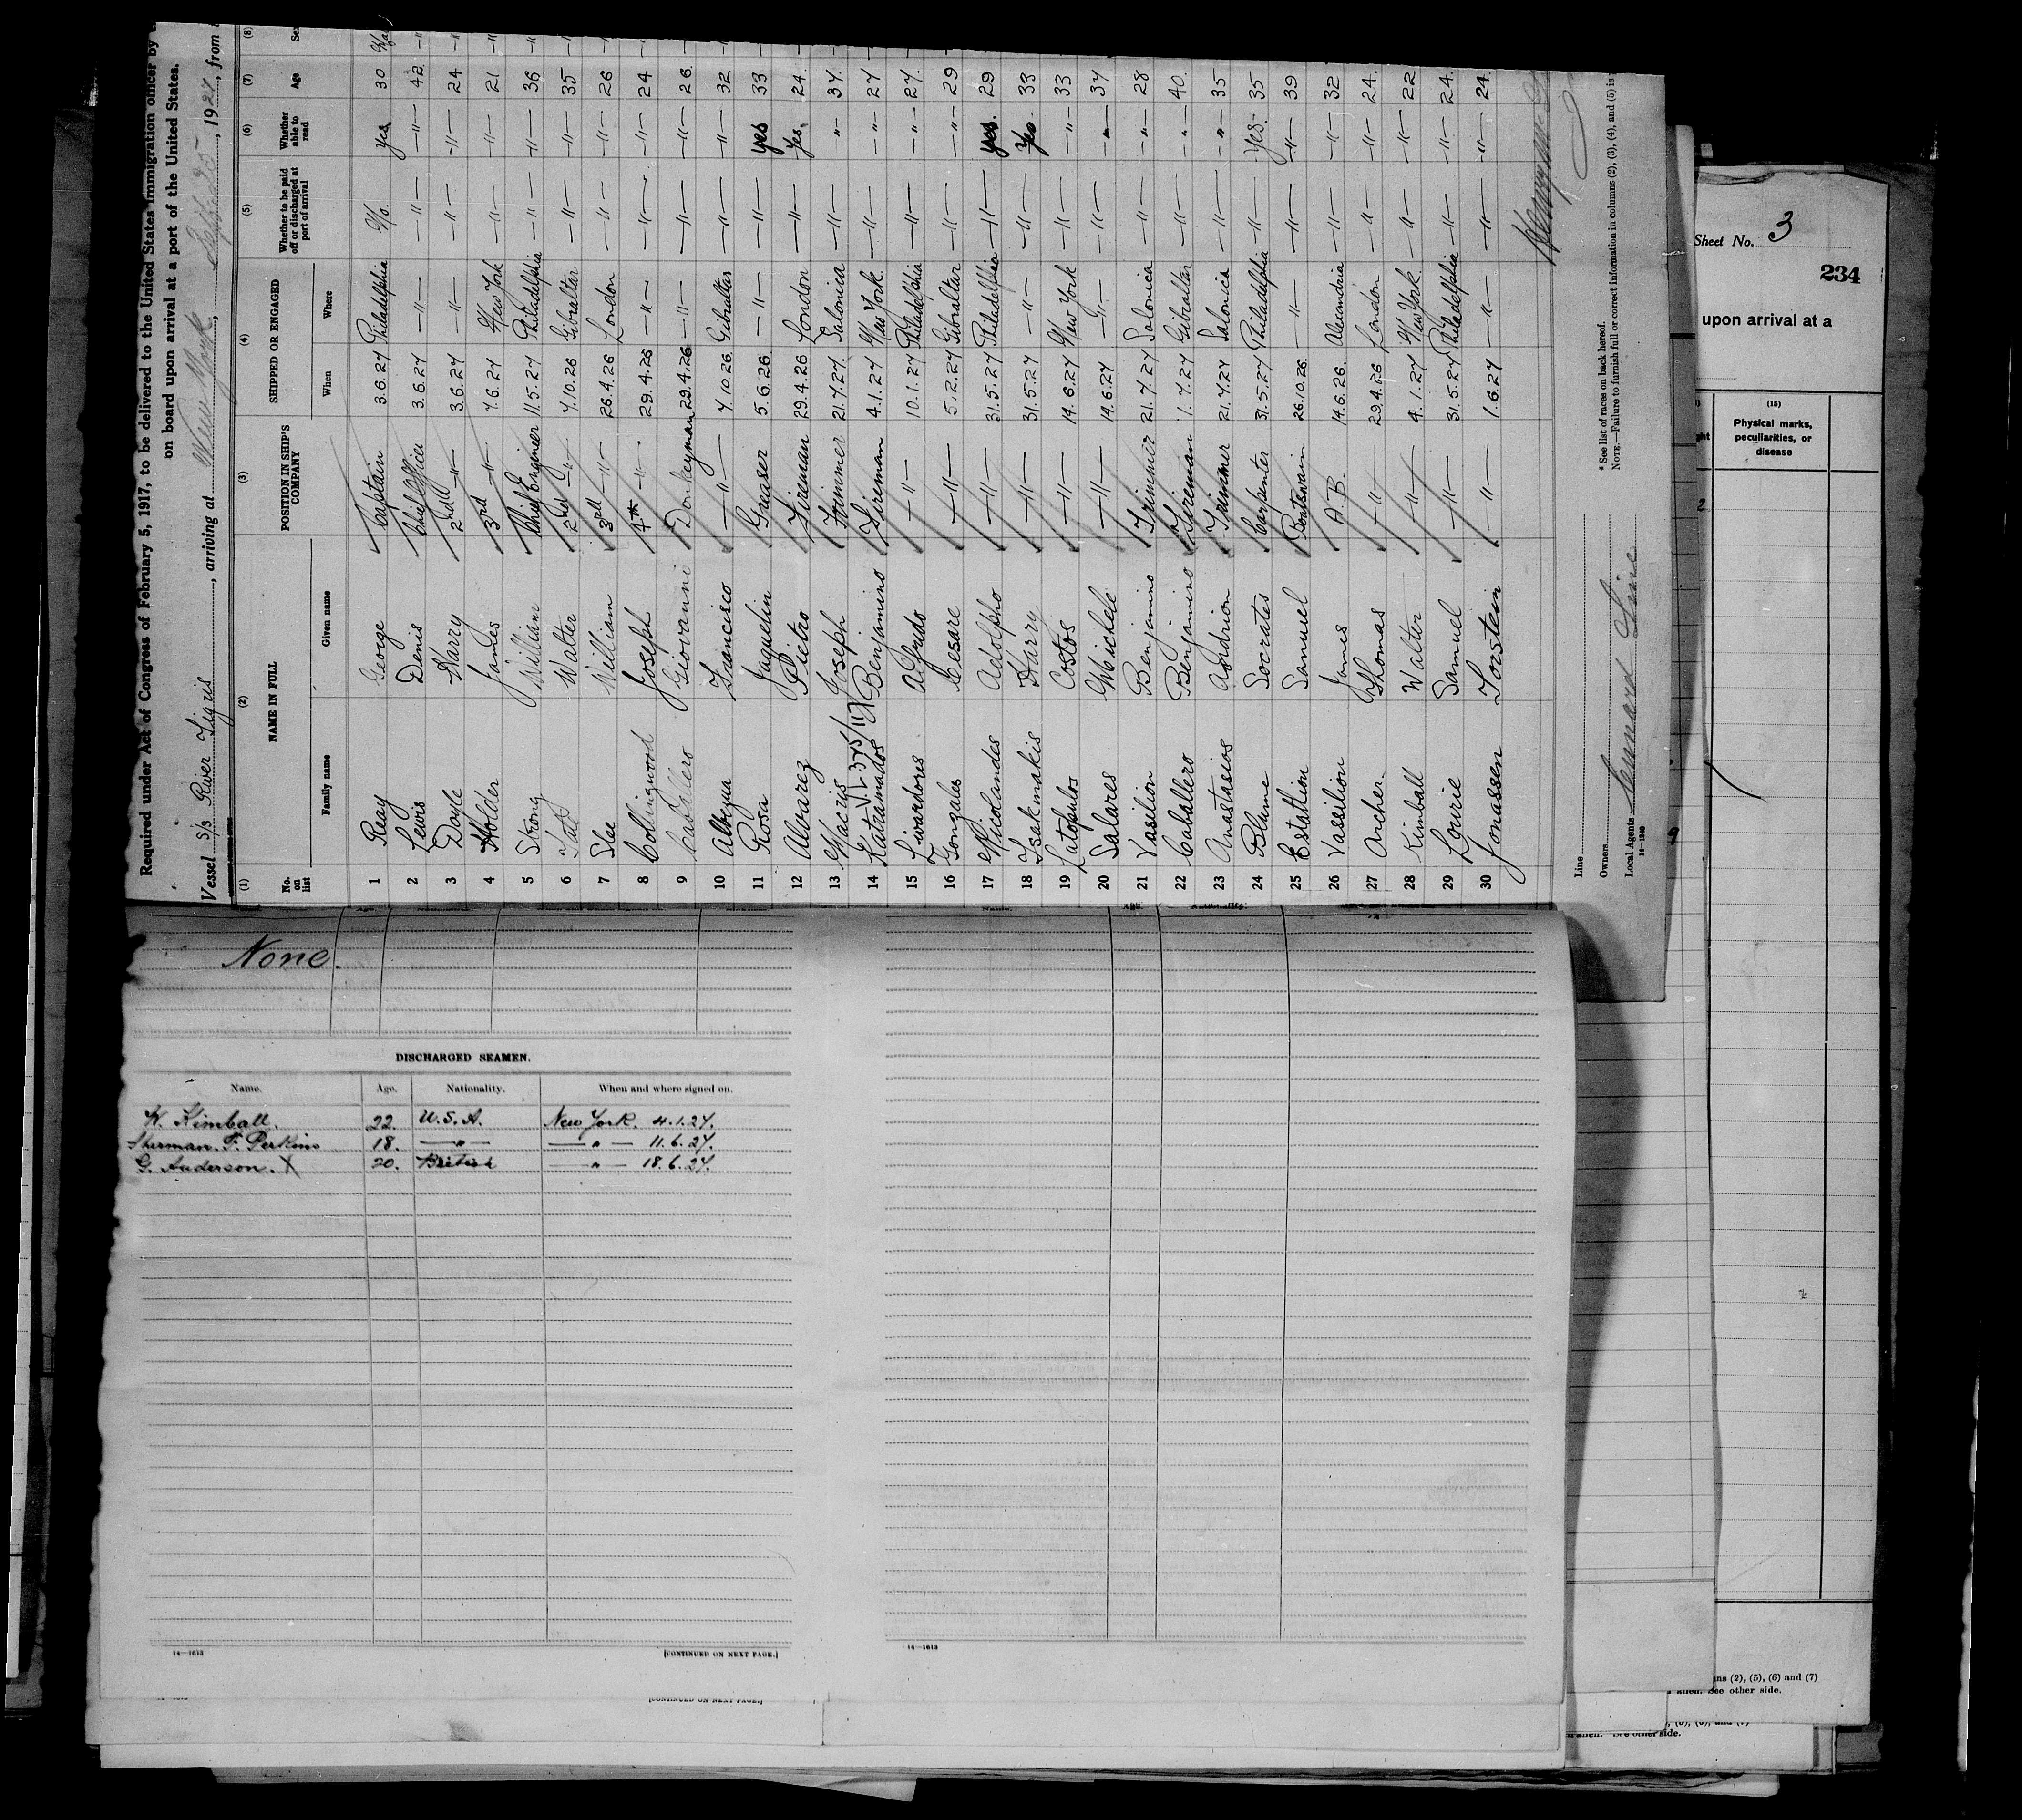 Required under Act of Congress of February 5, 1917, to be delivered to the United States immigration officer by
on board upon arrival at a port of the United States.
Vessel S/S River Tigris, arriving at New York, Sept, 1927, from
(1) (2) (3) (4) (5) (6) (7) (8)
No. on list NAME IN FULL POSITION IN SHIP'S COMPANY SHIPPED OR ENGAGED Whether to be paid off or discharged at port of arrival Whether able to read Age
Family name Given name When Where
1 Reay George Captain 3.6.27 Philadelphia No. yes 30
2 Lewis Denis Chief Officer 3.6.27 —"— —"— —"— 42
3 Doyle Harry 2nd —"— 3.6.27 —"— —"— —"— 24
4 Holder James 3rd —"— 7.6.27 New York —"— —"— 21
5 Strong William Chief Engineer 11.5.27 Philadelphia —"— —"— 36
6 Tait Walter 2nd —"— 7.10.26 Gibraltar —"— —"— 35
7 Slee William 3rd —"— 26.4.26 London —"— —"— 26
8 Collingwood Joseph 4th —"— 29.4.26 —"— —"— —"— 24
9 Caballero Giovanni Donkeyman 29.4.26 —"— —"— —"— 26
10 Francisco —"— 7.10.26 Gibraltar —"— —"— 32
11 Rosa Juquelin Greaser 5.6.26 —"— —"— yes 33
12 Alvarez Pietro Fireman 29.4.26 London —"— yes. 24
13 Macris Joseph Trimmer 21.7.27 Salonica —"— —"— 37
14 Katramados Benjamino Fireman 4.1.27 New York —"— —"— 27
15 Livardores Alfredo —"— 10.1.27 Philadelphia —"— —"— 27
16 Gonzales Cesare —"— 5.2.27 Gibraltar —"— —"— 29
17 Nicolandes Adolpho —"— 31.5.27 Philadelphia —"— yes. 29
18 Isakmakis Harry —"— 31.5.27 —"— —"— Yes. 33
19 Latopulos Costos —"— 14.6.27 New York —"— —"— 33
20 Salares Michele —"— 14.6.27 —"— —"— —"— 37
21 Vasilion Benjamino Trimmer 21.7.27 Salonica —"— —"— 28
22 Caballero Benjamino Fireman 1.7.27 Gibraltar —"— —"— 40
23 Anastasios Trimmer 21.7.27 Salonica —"— —"— 35
24 Blume Socrates Carpenter 31.5.27 Philadelphia —"— Yes. 35
25 Estathion Samuel Boatswain 26.10.26 —"— —"— —"— 39
26 Vassilion James A.B. 14.6.26 Alexandria —"— —"— 32
27 Archer Thomas —"— 29.4.26 London —"— —"— 24
28 Kimball Walter —"— 4.1.27 New York —"— —"— 22
29 Lourie Samuel —"— 31.5.27 Philadelphia —"— —"— 24
30 Jonassen Torstein —"— 1.6.27 —"— —"— —"— 24
Line
Owners
Local Agents Cunard Line
14—1240
* See list of races on back hereof.
NOTE.—Failure to furnish full or correct information in columns (2), (3), (4), and (5) is
None.
DISCHARGED SEAMEN.
Name. Age. Nationality. When and where signed on.
W. Kimball. 22. U.S.A. New York. 4.1.27.
Sherman. F. Perkins 18. —"— —"— 11.6.27.
G. Anderson. X 20. British —"— 18.6.27.
14—1613 [CONTINUED ON NEXT PAGE.]
14—1613
[CONTINUED ON NEXT PAGE.]
Sheet No. 3
234
upon arrival at a
(15)
Physical marks, peculiarities, or disease
(2), (5), (6) and (7)
alien. See other side.